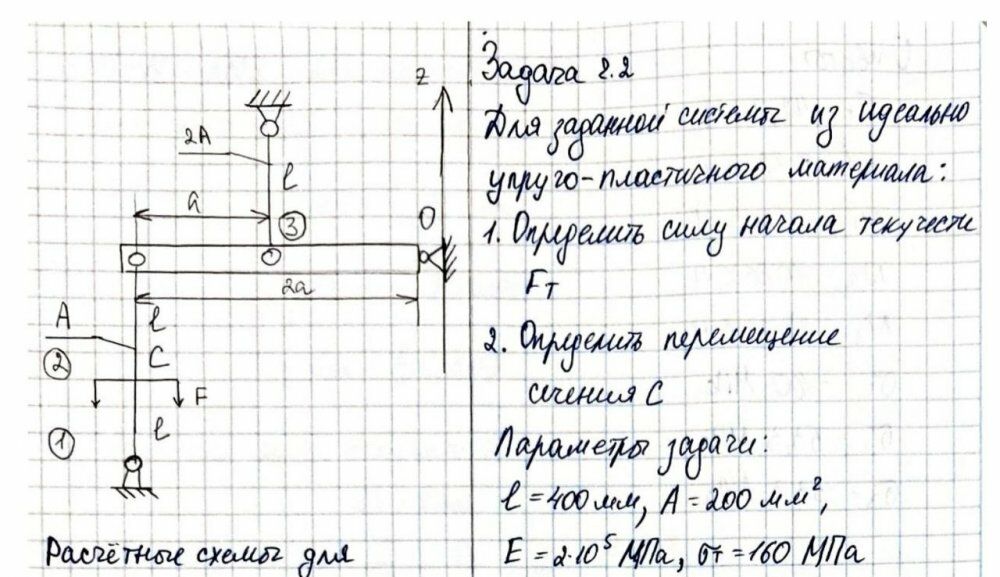 z
2A
l
a
③
O
2a
A
l
②
C
F
①
l
Расчётные схемы для
Задача 2.2
Для заданной системы из идеально
упруго-пластичного материала:
1. Определить силу начала текучести
Fт
2. Определить перемещение
сечения C
Параметры задачи:
l = 400 мм, A = 200 мм²,
E = 2·10⁵ МПа, σт = 160 МПа